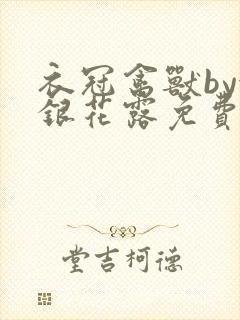 衣冠禽獸by
銀花露免費
堂吉柯德